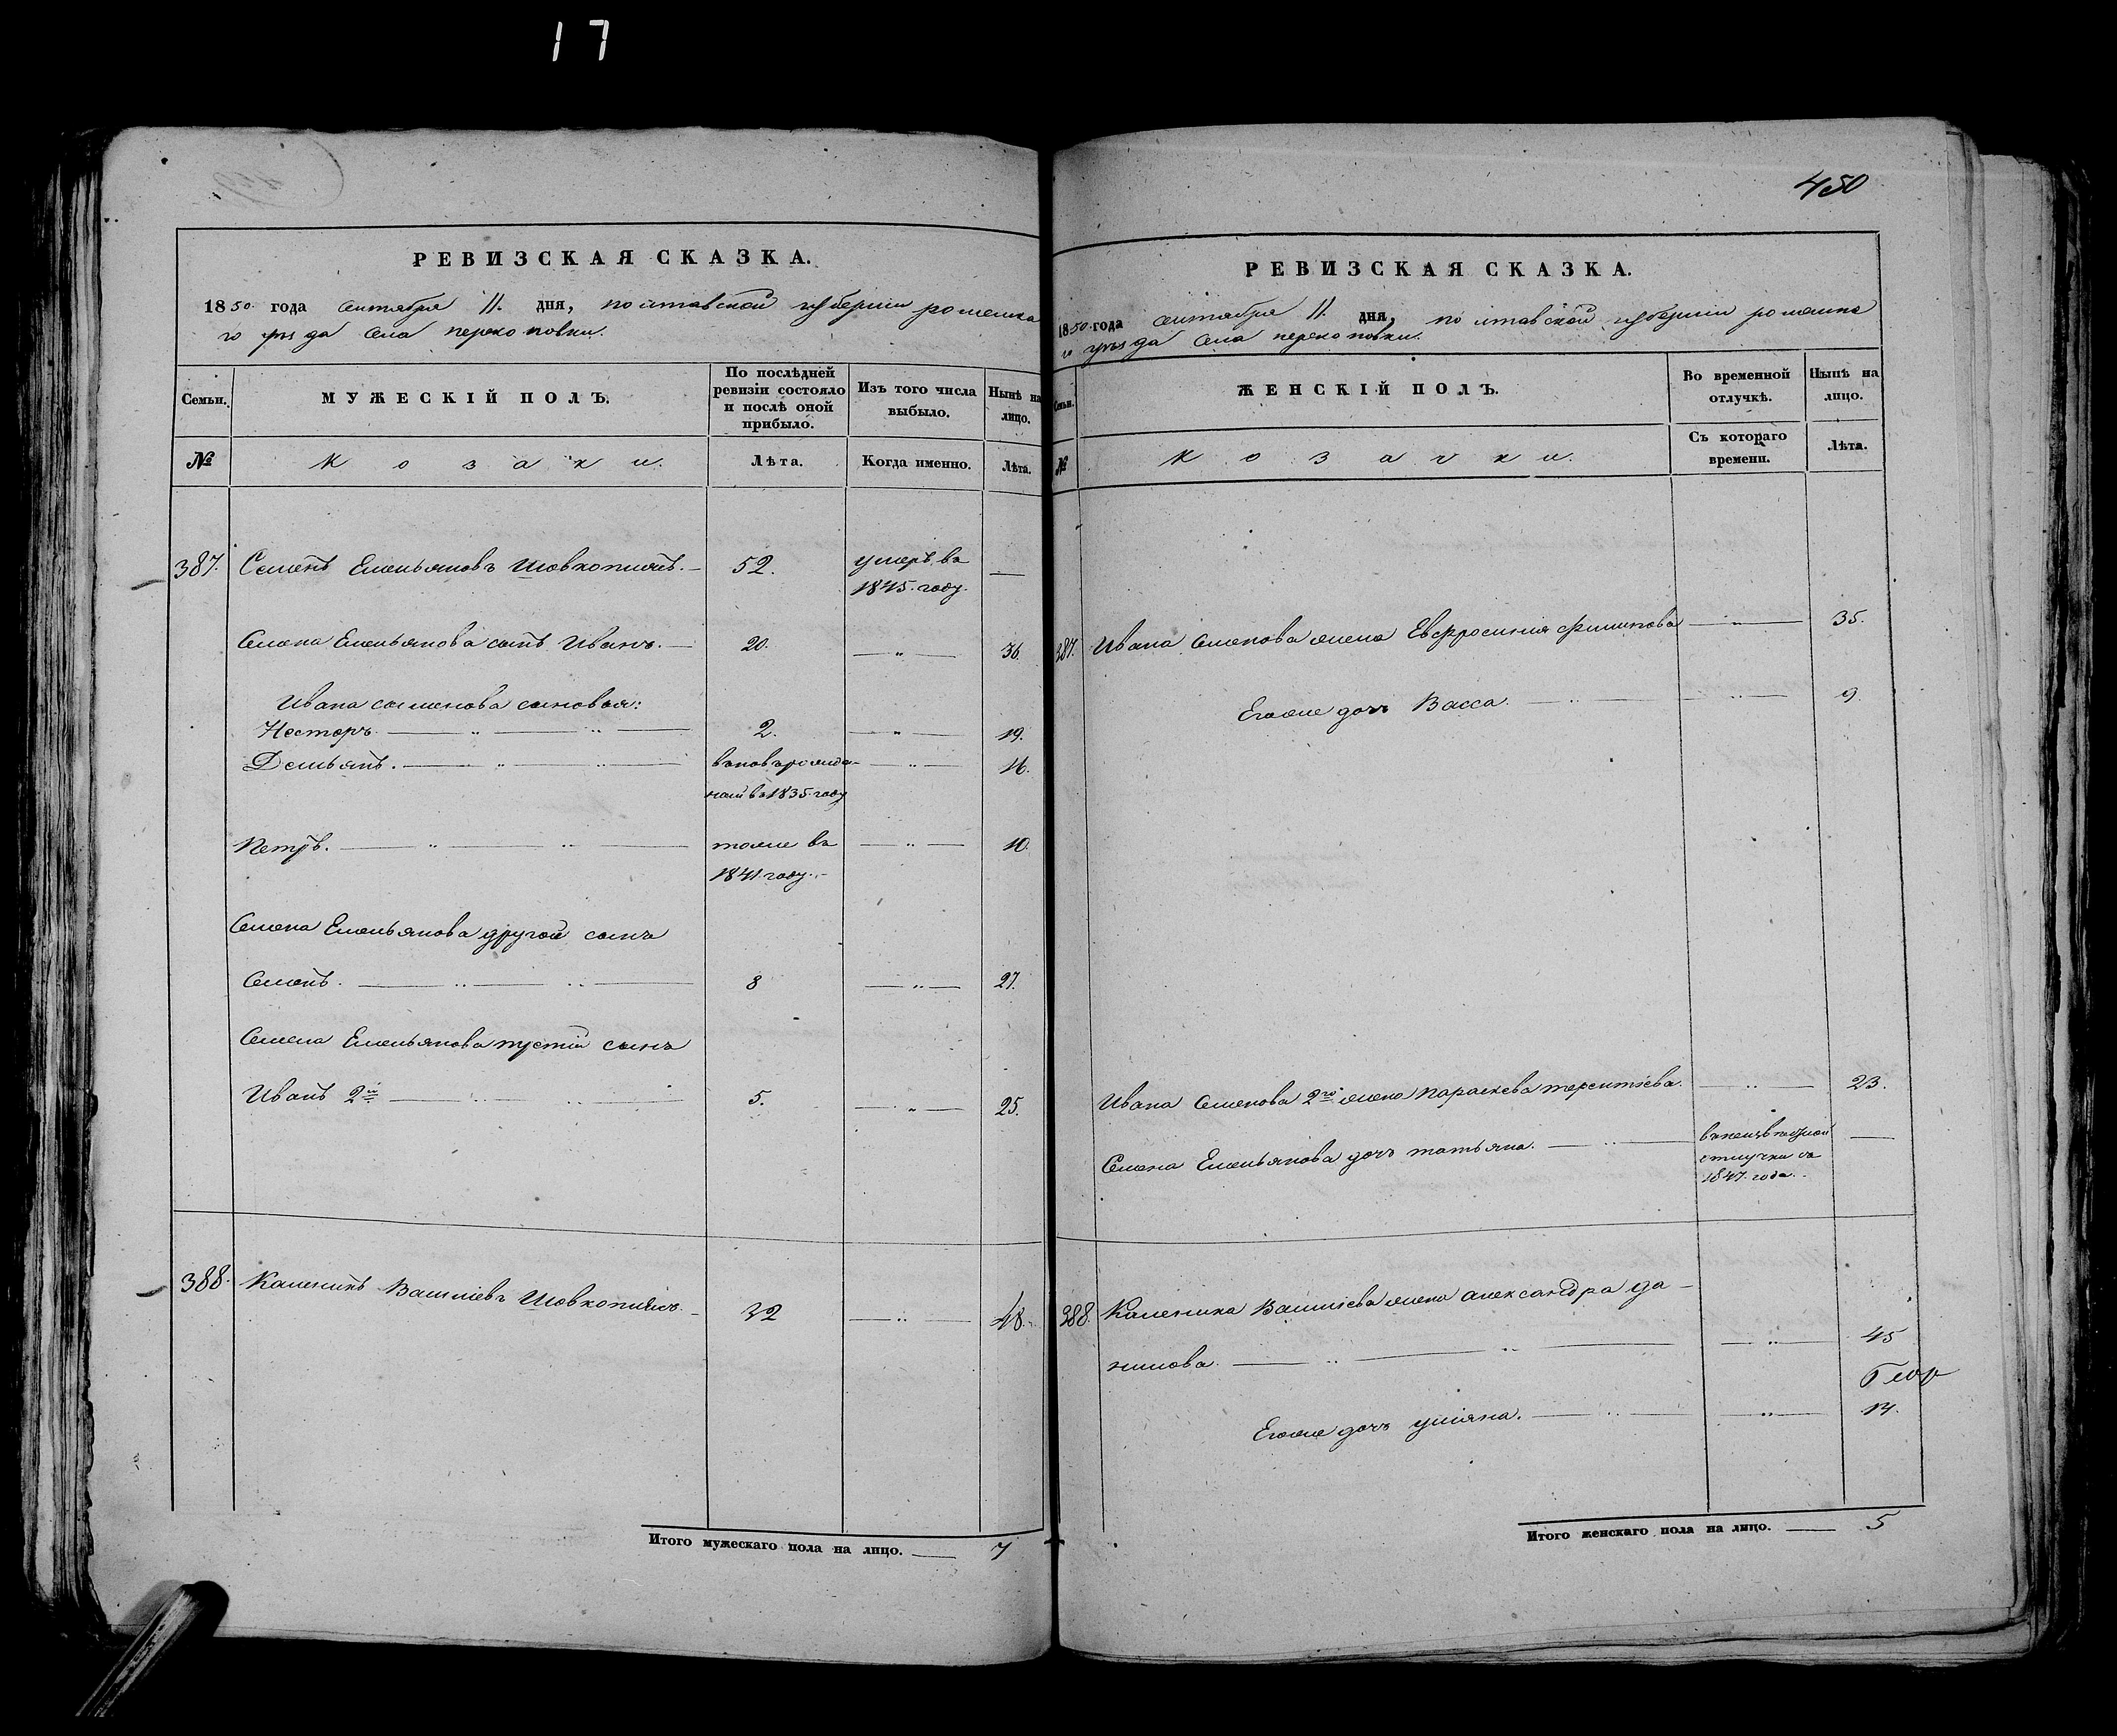 17
РЕВИЗСКАЯ СКАЗКА.
1850 года сентября 11. дня, полтавской губерніи роменска
го уѣзда села перекоповки.
Семьи. МУЖЕСКІЙ ПОЛЪ. По послѣдней ревизіи состояло и послѣ оной прибыло. Изъ того числа выбыло. Нынѣ на лицо.
№ Козаки. Лѣта. Когда именно. Лѣта.
387. Семенъ Емельяновъ Шовкоплясъ. 52. умеръ въ —
1845. году.
Семена Емельянова сынъ Иванъ. 20. — „ — 36.
Ивана семенова сыновья:
Несторъ. 2. — „ — 19.
Демьянъ. вновь рожде- — „ — 16.
ной въ 1835. году
Петръ. тоже въ — „ — 10.
1841. году.
Семена Емельянова другой сынъ
Семенъ. 8 — „ — 27.
Семена Емельянова третій сынъ
Иванъ 2й 5. — „ — 25.
388. Каленикъ Василіевъ Шовкоплясъ. 32 — „ — 48.
Итого мужескаго пола на лицо. — 7
450
РЕВИЗСКАЯ СКАЗКА.
1850 года сентября 11. дня, полтавской губерніи роменска
го уѣзда села перекоповки.
Семьи. ЖЕНСКІЙ ПОЛЪ. Во временной отлучкѣ. Нынѣ на лицо.
№ Козачки. Съ котораго времени. Лѣта.
387. Ивана Семенова жена Евфросинія филипова — „ — 35.
Егоже дочь Васса. — „ — 9.
Ивана Семенова 2го жена параскева терентіева. — „ — 23.
Семена Емельянова дочь татьяна. —
отлучки съ
1847. года.
388. Каленика Василіева жена александра да-
нилова. — „ — 45
Егоже дочь уліяна. — „ — 14.
Итого женскаго пола на лицо. — 5